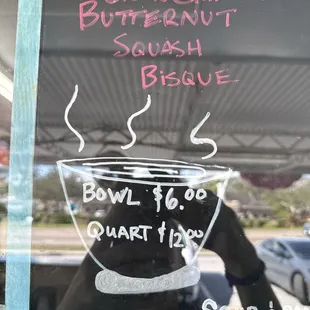 BUTTERNUT
SQUASH
BISQUE
BOWL $6.00
QUART $12.00